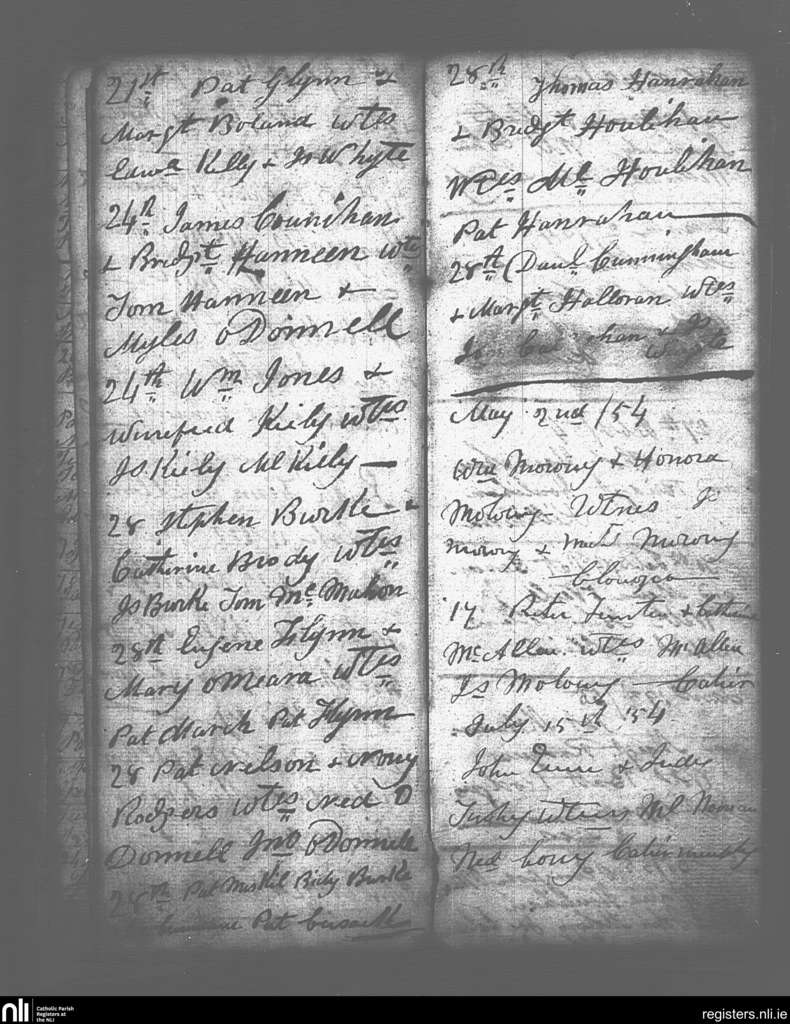 21st Pat Glynn &
Margt Boland wtss
Edwd Killy & Js Whyte
24th James Counihan
& Bridgt Hanneen wts
Tom Hanneen &
Myles O Donnell
24th Wm Jones &
Winefred Kiely wtss
Js Kiely Ml Kielly
28 Stephen Burke &
Catherine Brody wtss
Js Burke Tom McMahon
28th Eugene Flynn &
Mary O Meara wtss
Pat March Pat Flynn
28 Pat Nelson & Nony
Rodgers wtss Ned O
Donnell Jno O Donnell
28th Pat Biddy Burke
Pat
28th Thomas Hanrahan
& Bridgt Houlihan
wtss Ml Houlihan
Pat Hanrahan
28th (Danl Cunningham
& Margt Halloran wtss
& Js
Whyte
May 2nd /54
Wm Morony & Honora
Molony Wtness J
Morony & Morony
Clonoza
17 Peter & Catherine
McAllen wtss Mc Allen
Js Molony Cahir
July 15th 54
John & Judy
Tushy Wtness Ml
Ned Cony Cahirmurphy
nli
Catholic Parish
Registers at
the NLI
registers.nli.ie